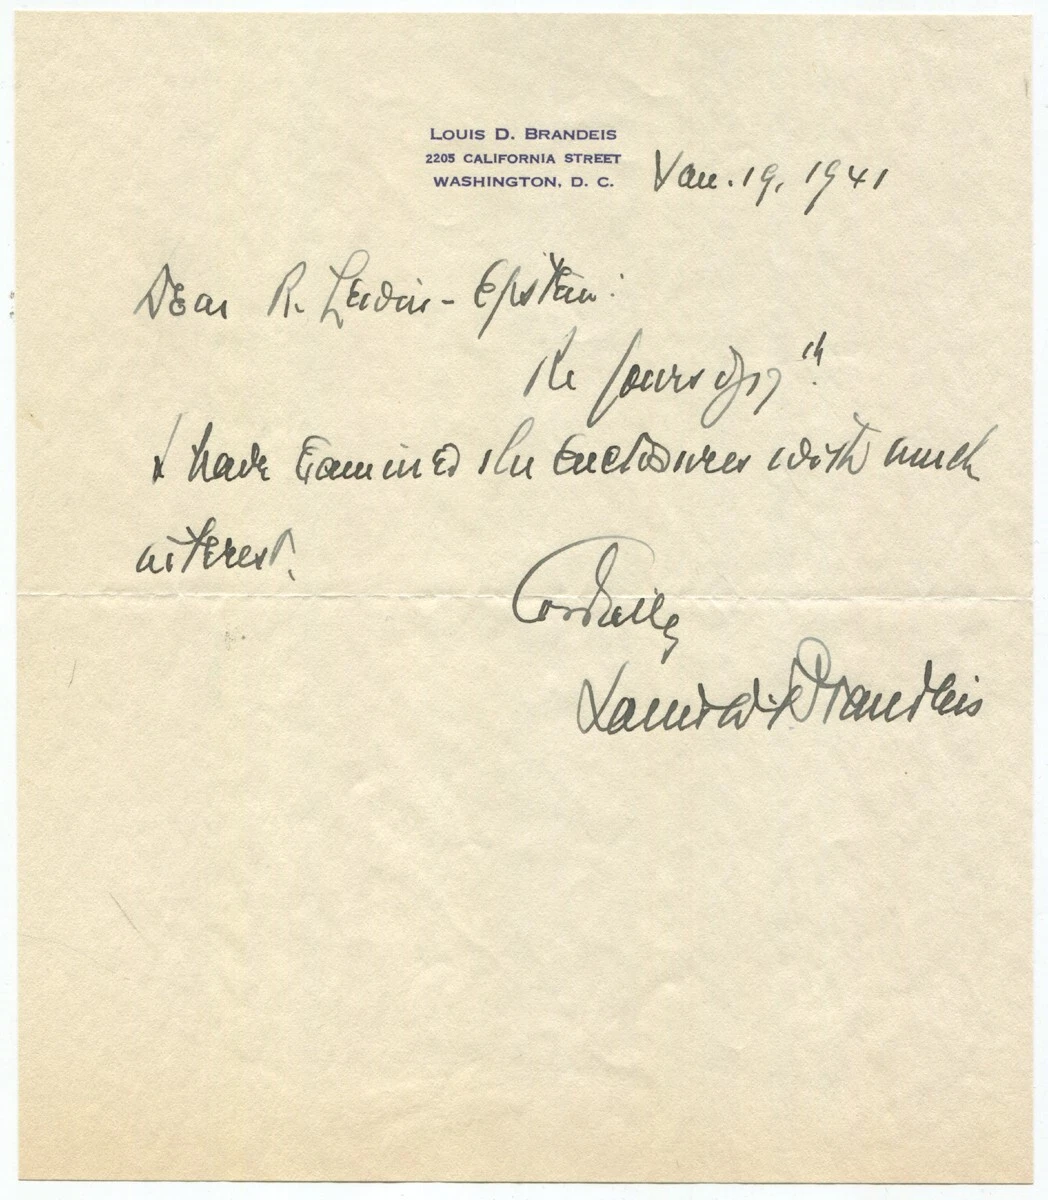 LOUIS D. BRANDEIS
2205 CALIFORNIA STREET
WASHINGTON, D. C.
Jan. 19, 1941
Dear R. Lewin-Epstein:
Re yours of 17th.
I have examined the enclosures with much
interest.
Cordially
Louis D. Brandeis